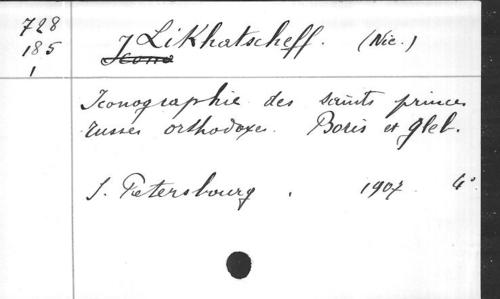 728
185
1
Likhatscheff. (Nic.)
Iconographie des saints princes
russes orthodoxes. Boris et gleb.
S. Petersbourg. 1907 4°